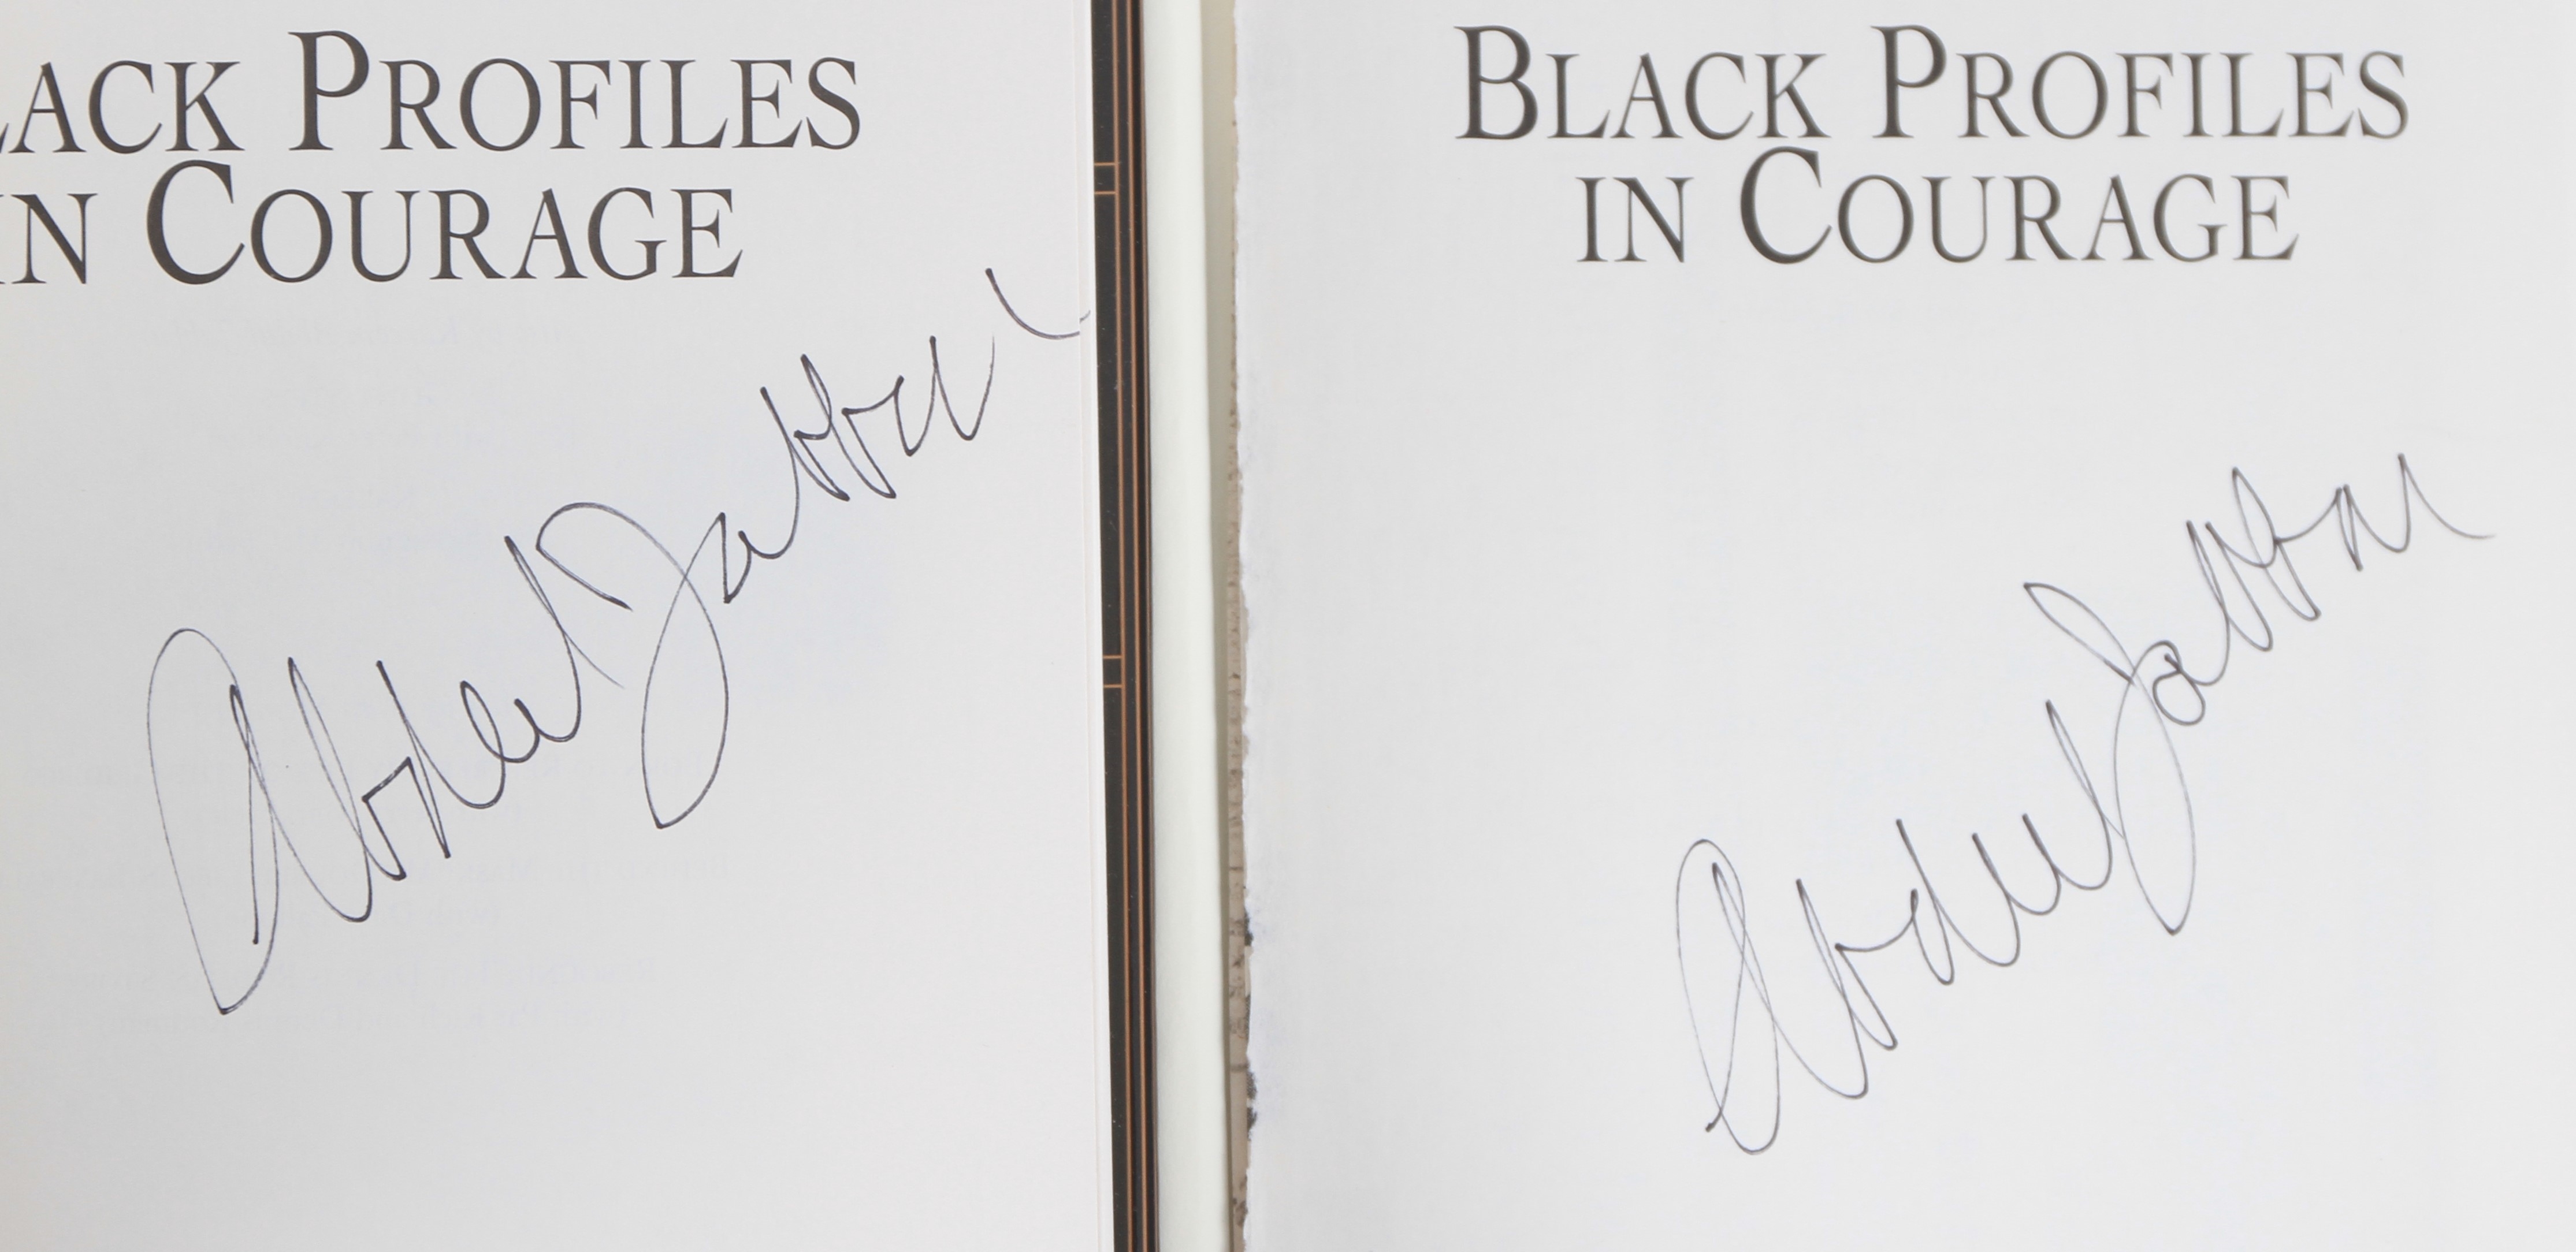 LACK PROFILES
IN COURAGE
Abdul Jabbar
BLACK PROFILES
IN COURAGE
Abdul Jabbar